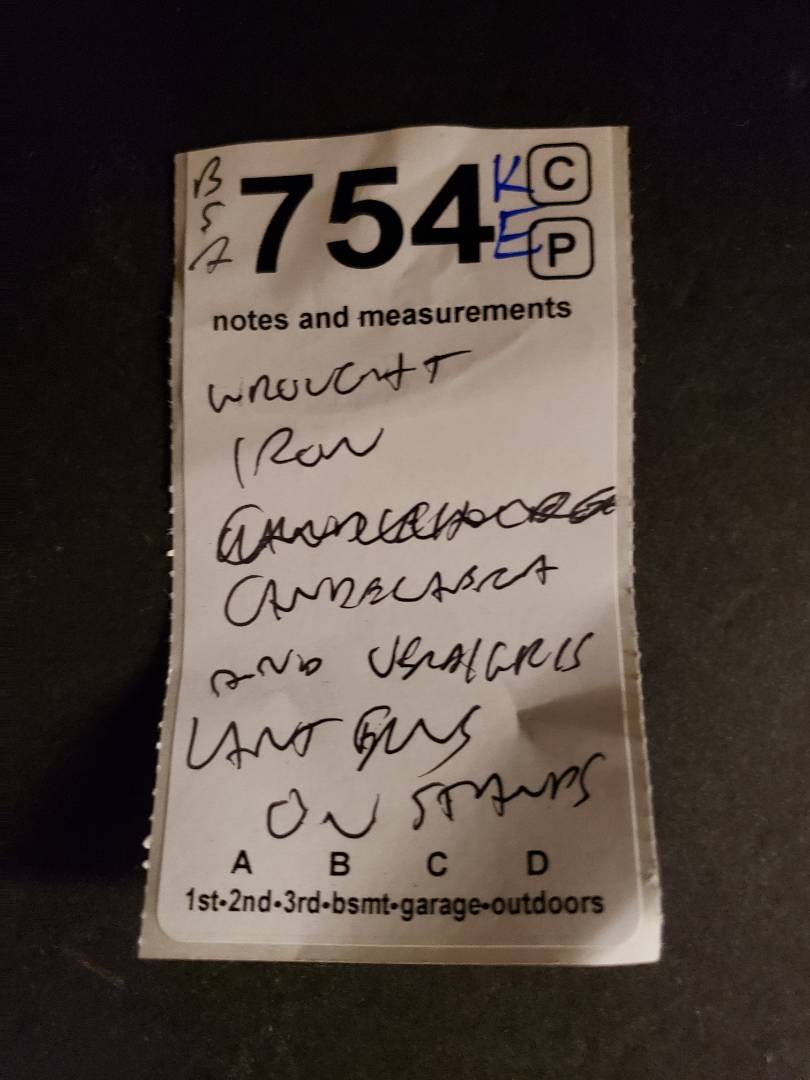 B 754 K C
S E P
A
notes and measurements
WROUGHT
IRON
CANDELABRA
AND VERDIGRIS
LANTERNS
ON STANDS
A B C D
1st•2nd•3rd•bsmt•garage•outdoors